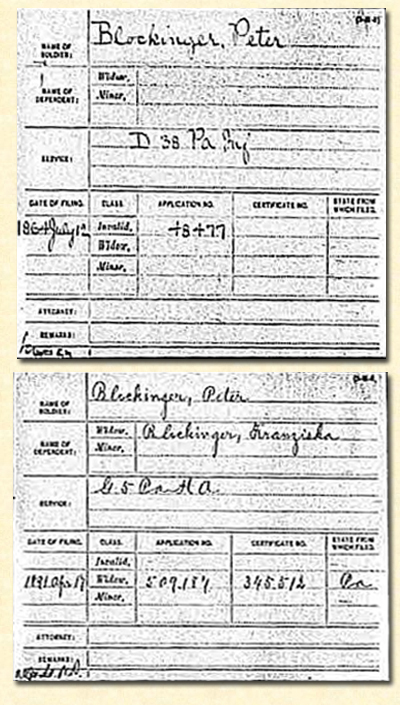 NAME OF SOLDIER: Blockinger, Peter
NAME OF DEPENDENT: Widow,
Minor,
SERVICE: D 38 Pa Inf
DATE OF FILING. CLASS. APPLICATION NO. CERTIFICATE NO. STATE FROM WHICH FILED.
1864 July Invalid, 48477
Widow,
Minor,
ATTORNEY:
REMARKS:
NAME OF SOLDIER: Blockinger, Peter
NAME OF DEPENDENT: Widow, Blockinger, Franziska
Minor,
SERVICE: G. 5 Pa H A.
DATE OF FILING. CLASS. APPLICATION NO. CERTIFICATE NO. STATE FROM WHICH FILED.
Invalid,
1891 Apr 17 Widow, 509.187 345.512 Pa
Minor,
ATTORNEY:
REMARKS: